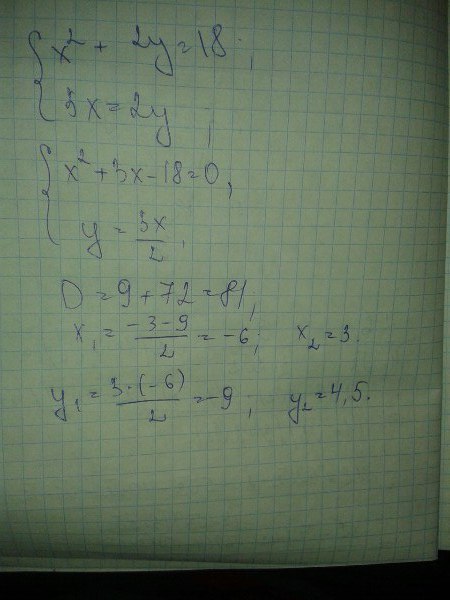 x² + 2y = 18;
3x = 2y;
x² + 3x - 18 = 0;
y = 3x/2;
D = 9 + 72 = 81;
x₁ = (-3-9)/2 = -6; x₂ = 3.
y₁ = 3·(-6)/2 = -9; y₂ = 4,5.